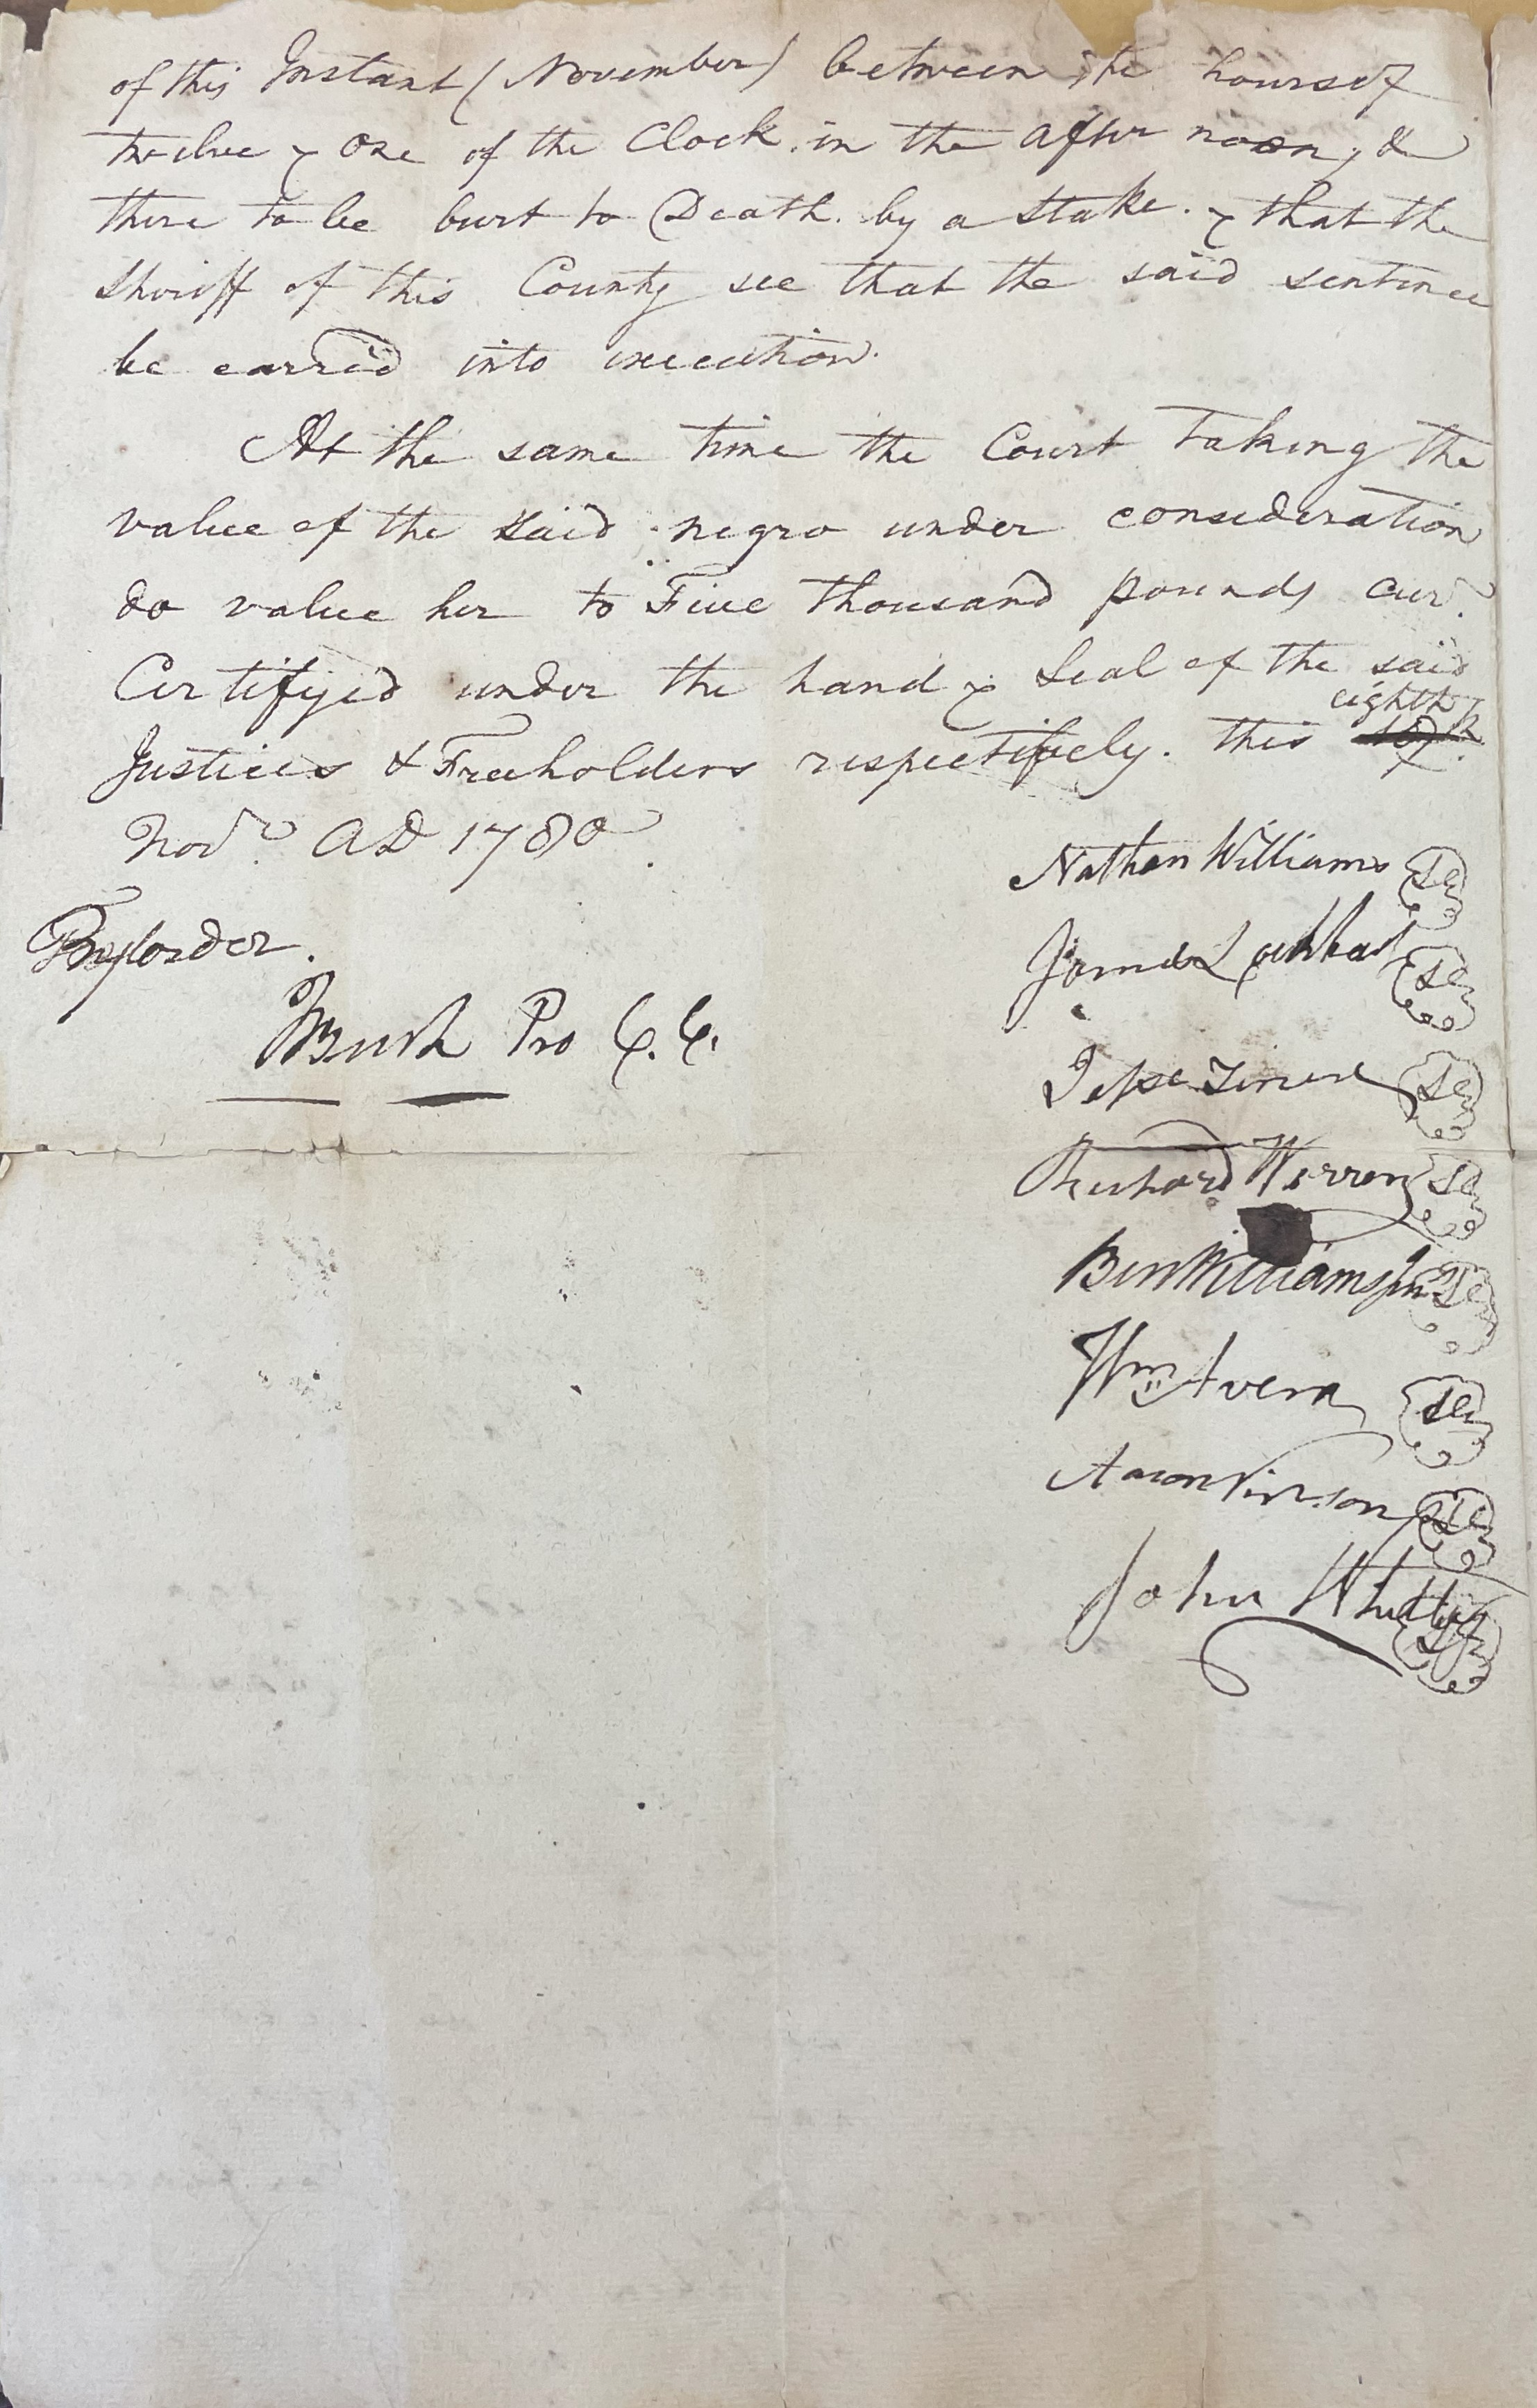 of this Instant (November) between the hours of
twelve & One of the Clock in the after noon, &
there to be burt to Death by a Stake. & that the
Sheriff of this County see that the said sentence
be carried into execution.
At the same time the Court taking the
value of the said negro under consideration
do value her to Five thousand pounds cur.
Certifyed under the hand & Seal of the said
Justices & Freeholders respectively. this eighth
Novr. AD 1780.
By order.
Bush Pro C. C.
Nathan Williams Sel
James Lockhart Sel
Jesse Sel
Richard Warren Sel
Ben Williams Junr Sel
Wm Avera Sel
Aaron Vinson Sel
John Whitley Sel